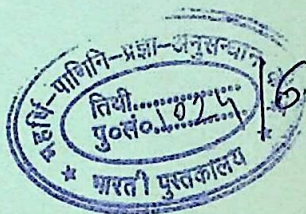 महर्षि-पाणिनि-प्रज्ञा-अनुसन्धान
तिथी..............
पु०सं०.1024
भारती पुस्तकालय